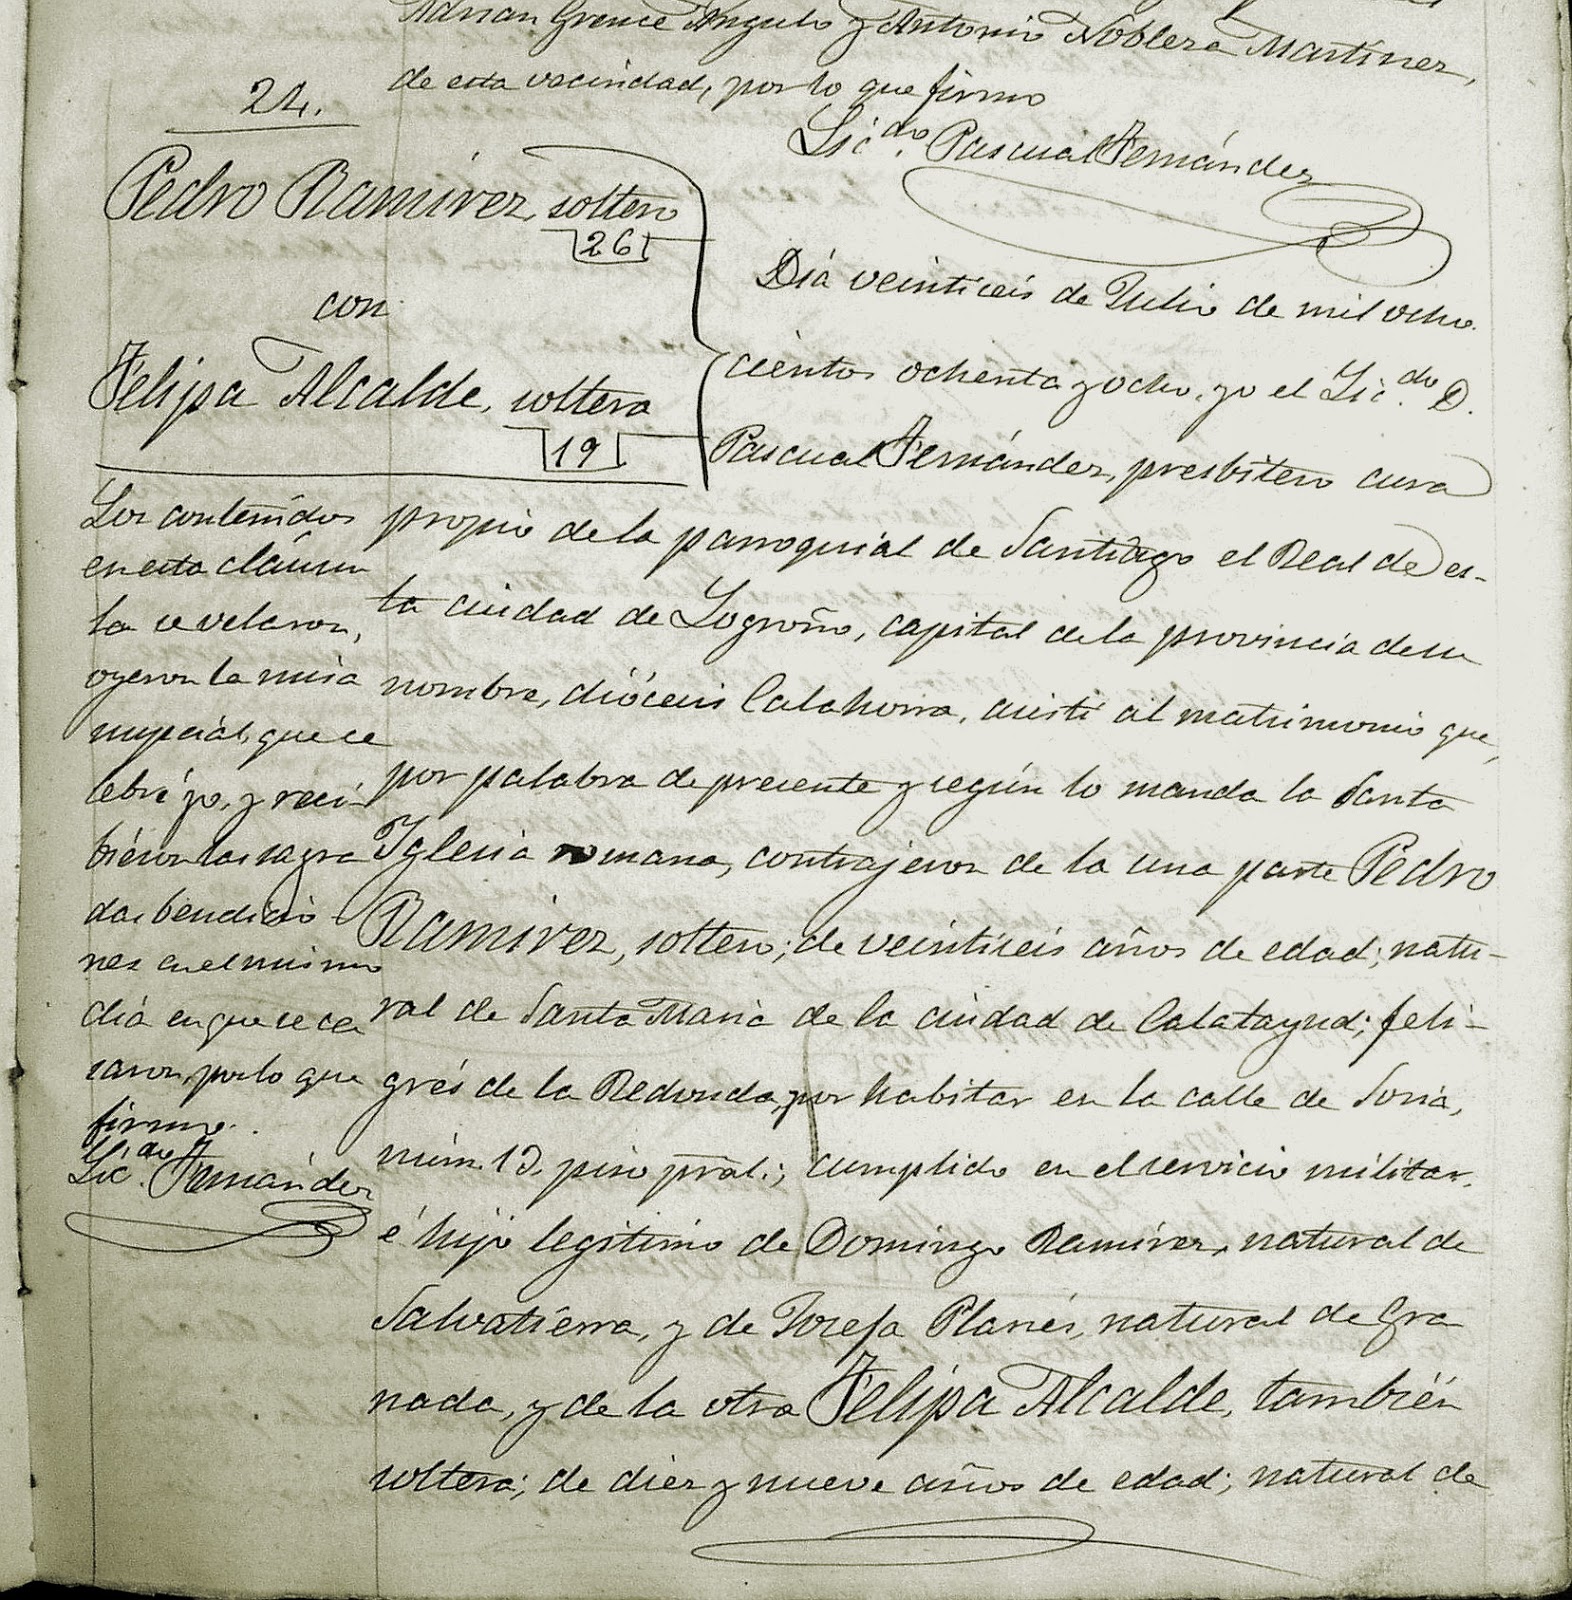 Adrian Grence Angulo y Antonio Noblera Martinez,
de esta vecindad, por lo que firmo
Lic.do Pascual Fernández
24.
Pedro Ramirez, soltero
26
con
Felipa Alcalde, soltera
19
Los contenidos
en esta cláusu
la se velaron,
oyeron la misa
nupcial, que ce
lebré yo, y reci
bieron las sagra
das bendicio
nes en el mismo
dia en que se ca
saron, por lo que
firmo.
Lic.do Fernández
Dia veintiseis de Julio de mil ocho
cientos ochenta y ocho, yo el Lic.do D.
Pascual Fernández, presbitero cura
propio de la parroquial de Santiago el Real de es-
ta ciudad de Logroño, capital de la provincia de su
nombre, diócesis Calahorra, asisti al matrimonio que,
por palabra de presente y según lo manda la Santa
Iglesia romana, contrajeron de la una parte Pedro
Ramirez, soltero; de veintiseis años de edad; natu-
ral de Santa Maria de la ciudad de Calatayud; feli-
grés de la Redonda, por habitar en la calle de Soria,
núm. 13 piso pral.; cumplido en el servicio militar,
é hijo legitimo de Domingo Ramirez, natural de
Salvatierra, y de Josefa Planés, natural de Gra
nada, y de la otra Felipa Alcalde, también
soltera; de diez y nueve años de edad; natural de